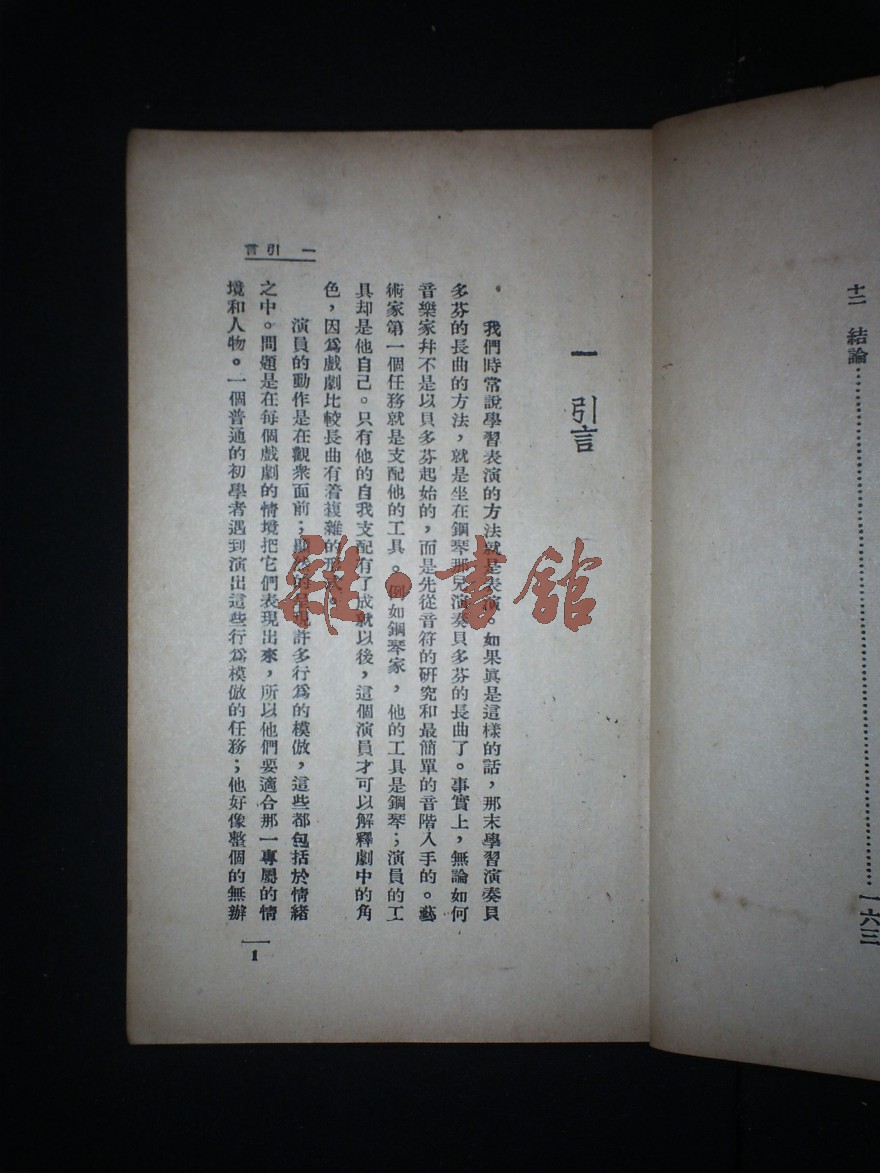 十二　結論……………………一六三
一　引言
一　引言
我們時常說學習表演的方法就是表演。如果眞是這樣的話，那末學習演奏貝
多芬的長曲的方法，就是坐在鋼琴那兒演奏貝多芬的長曲了。事實上，無論如何
音樂家幷不是以貝多芬起始的，而是先從音符的研究和最簡單的音階入手的。藝
術家第一個任務就是支配他的工具。例如鋼琴家，他的工具是鋼琴；演員的工
具却是他自己。只有他的自我支配有了成就以後，這個演員才可以解釋劇中的角
色，因爲戲劇比較長曲有着複雜的形式。
演員的動作是在觀衆面前；呈現許多行爲的模倣，這些都包括於情緒
之中。問題是在每個戲劇的情境把它們表現出來，所以他們要適合那一專屬的情
境和人物。一個普通的初學者遇到演出這些行爲模倣的任務；他好像整個的無辦
1
雜·書館